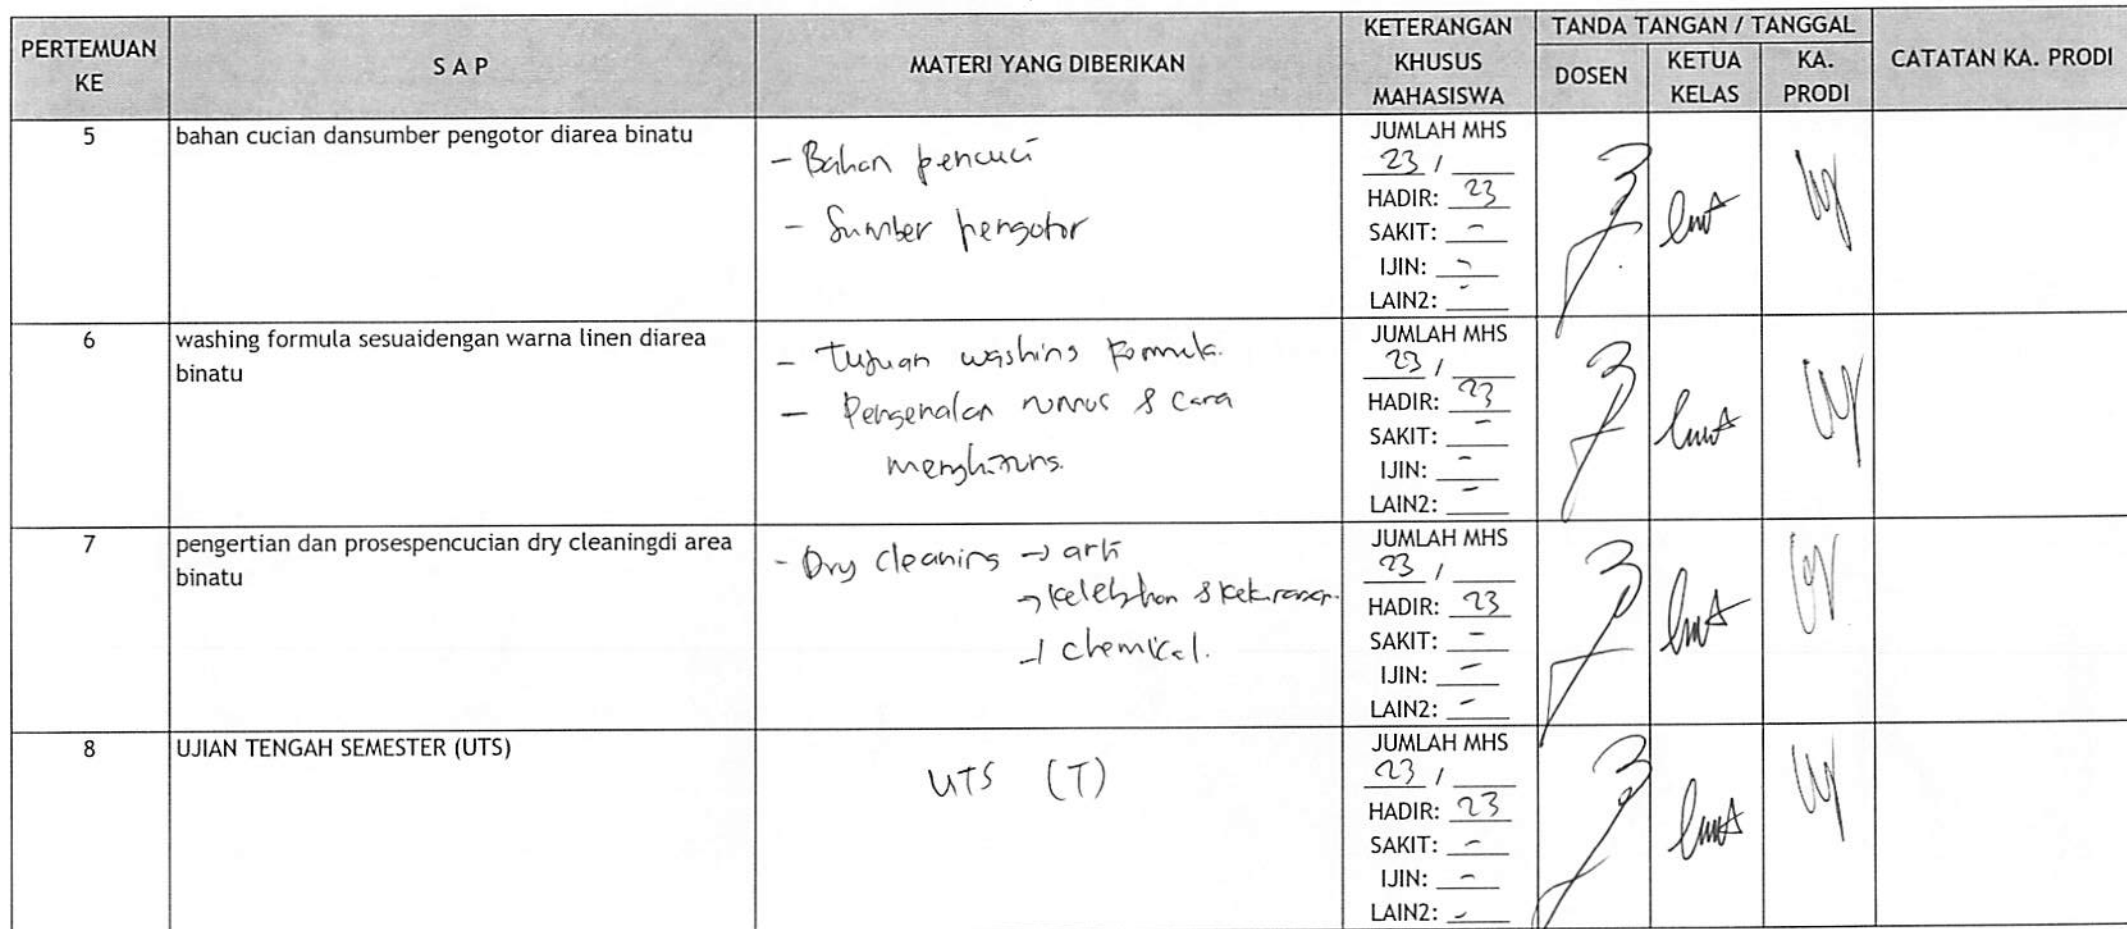 PERTEMUAN KE
S A P
MATERI YANG DIBERIKAN
KETERANGAN KHUSUS MAHASISWA
TANDA TANGAN / TANGGAL
DOSEN
KETUA KELAS
KA. PRODI
CATATAN KA. PRODI
5
bahan cucian dansumber pengotor diarea binatu
- Bahan pencuci
- Sumber pengotor
JUMLAH MHS
23 /
HADIR: 23
SAKIT: -
IJIN: -
LAIN2: -
6
washing formula sesuaidengan warna linen diarea
binatu
- Tujuan washing formula.
- Pengenalan rumus & cara
menghitung.
JUMLAH MHS
23 /
HADIR: 23
SAKIT: -
IJIN: -
LAIN2: -
7
pengertian dan prosespencucian dry cleaningdi area
binatu
- Dry cleaning → arti
→ kelebihan & kekurangan.
→ chemical.
JUMLAH MHS
23 /
HADIR: 23
SAKIT: -
IJIN: -
LAIN2: -
8
UJIAN TENGAH SEMESTER (UTS)
UTS (T)
JUMLAH MHS
23 /
HADIR: 23
SAKIT: -
IJIN: -
LAIN2: -